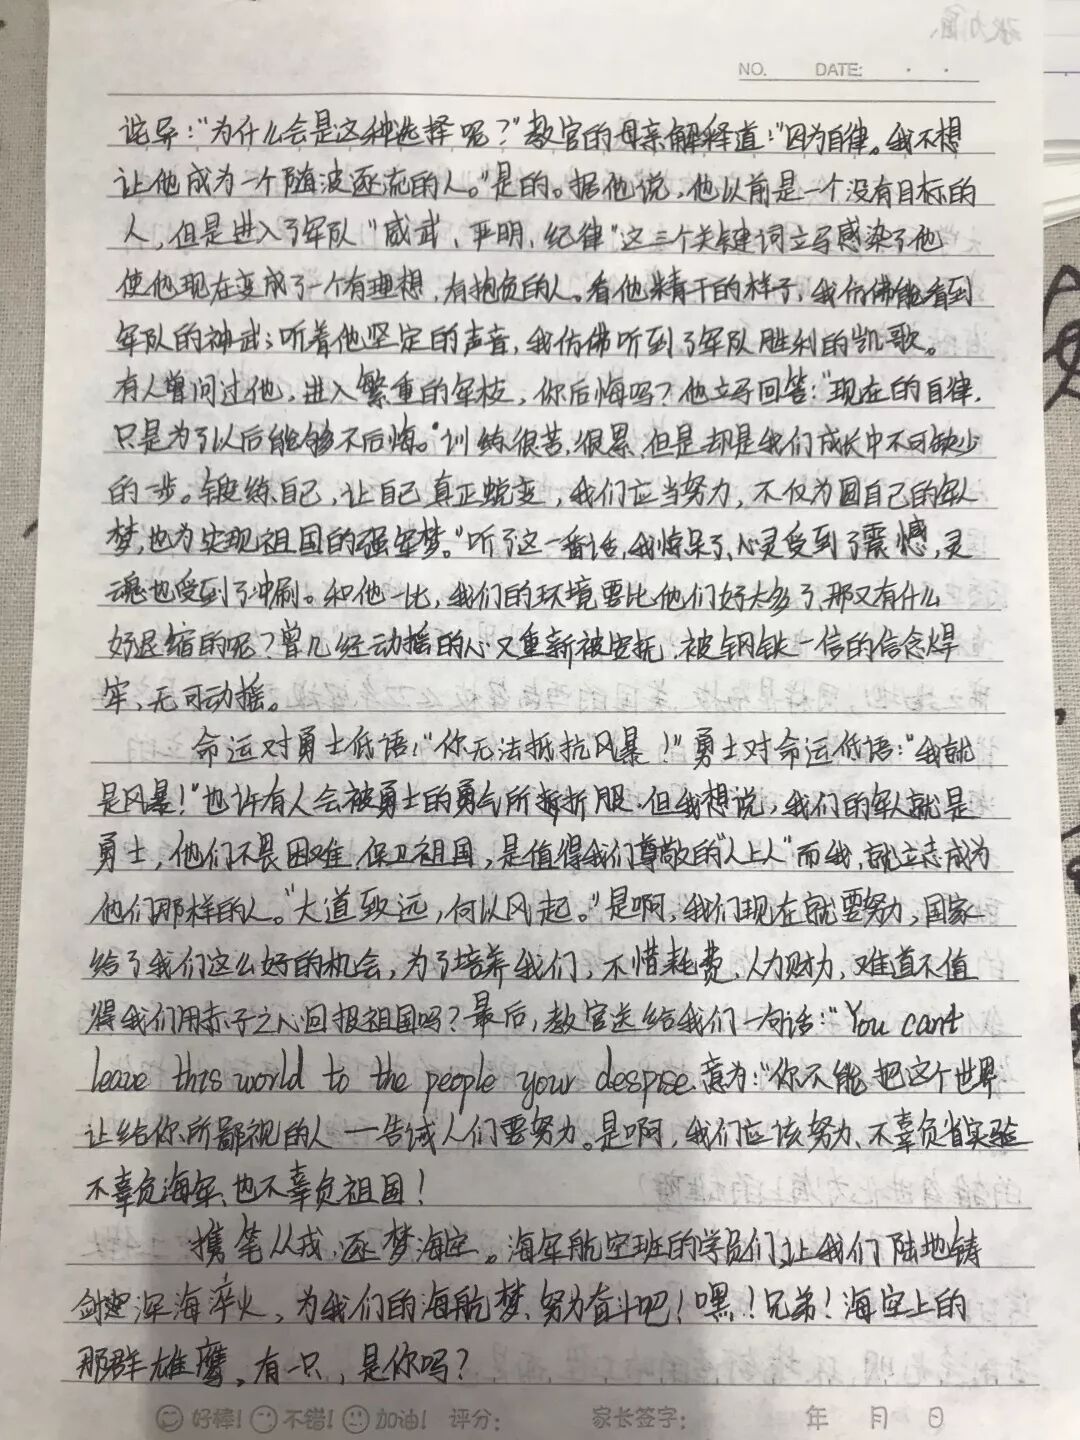 NO. DATE: · ·
诧异:"为什么会是这种选择呢?"教官的母亲解释道:"因为自律。我不想
让他成为一个随波逐流的人。"是的。据他说,他以前是一个没有目标的
人,但是进入了军队"威武、严明、纪律"这三个关键词立马感染了他
使他现在变成了一个有理想,有抱负的人。看他精干的样子,我仿佛能看到
军队的神武;听着他坚定的声音,我仿佛听到了军队胜利的凯歌。
有人曾问过他,进入繁重的军校,你后悔吗?他立马回答:"现在的自律,
只是为了以后能够不后悔。"训练很苦,很累,但是却是我们成长中不可缺少
的一步。锻练自己,让自己真正蜕变,我们应当努力,不仅为圆自己的军人
梦,也为实现祖国的强军梦。"听了这一番话,我惊呆了,心灵受到了震憾,灵
魂也受到了冲刷。和他一比,我们的环境要比他们好太多了,那又有什么
好退缩的呢?曾几经动摇的心又重新被安抚,被钢铁一信的信念焊
牢,无可动摇。
命运对勇士低语:"你无法抵抗风暴!"勇士对命运低语:"我就
是风暴!"也许有人会被勇士的勇气所折服,但我想说,我们的军人就是
勇士,他们不畏困难,保卫祖国,是值得我们尊敬的"人上人"而我,就立志成为
他们那样的人。"大道致远,何以风起。"是啊,我们现在就要努力,国家
给了我们这么好的机会,为了培养我们,不惜耗费,人力财力,难道不值
得我们用赤子之心回报祖国吗?最后,教官送给我们一句话:"You can't
leave this world to the people your despise.意为:"你不能把这个世界
让给你所鄙视的人—告诫人们要努力。是啊,我们应该努力,不辜负省实验
不辜负海军,也不辜负祖国!
携笔从戎,逐梦海空。海军航空班的学员们,让我们陆地铸
剑,深海淬火,为我们的海航梦,努力奋斗吧!嘿!兄弟!海空上的
那群雄鹰,有一只,是你吗?
好棒! 不错! 加油! 评分: 家长签字: 年 月 日